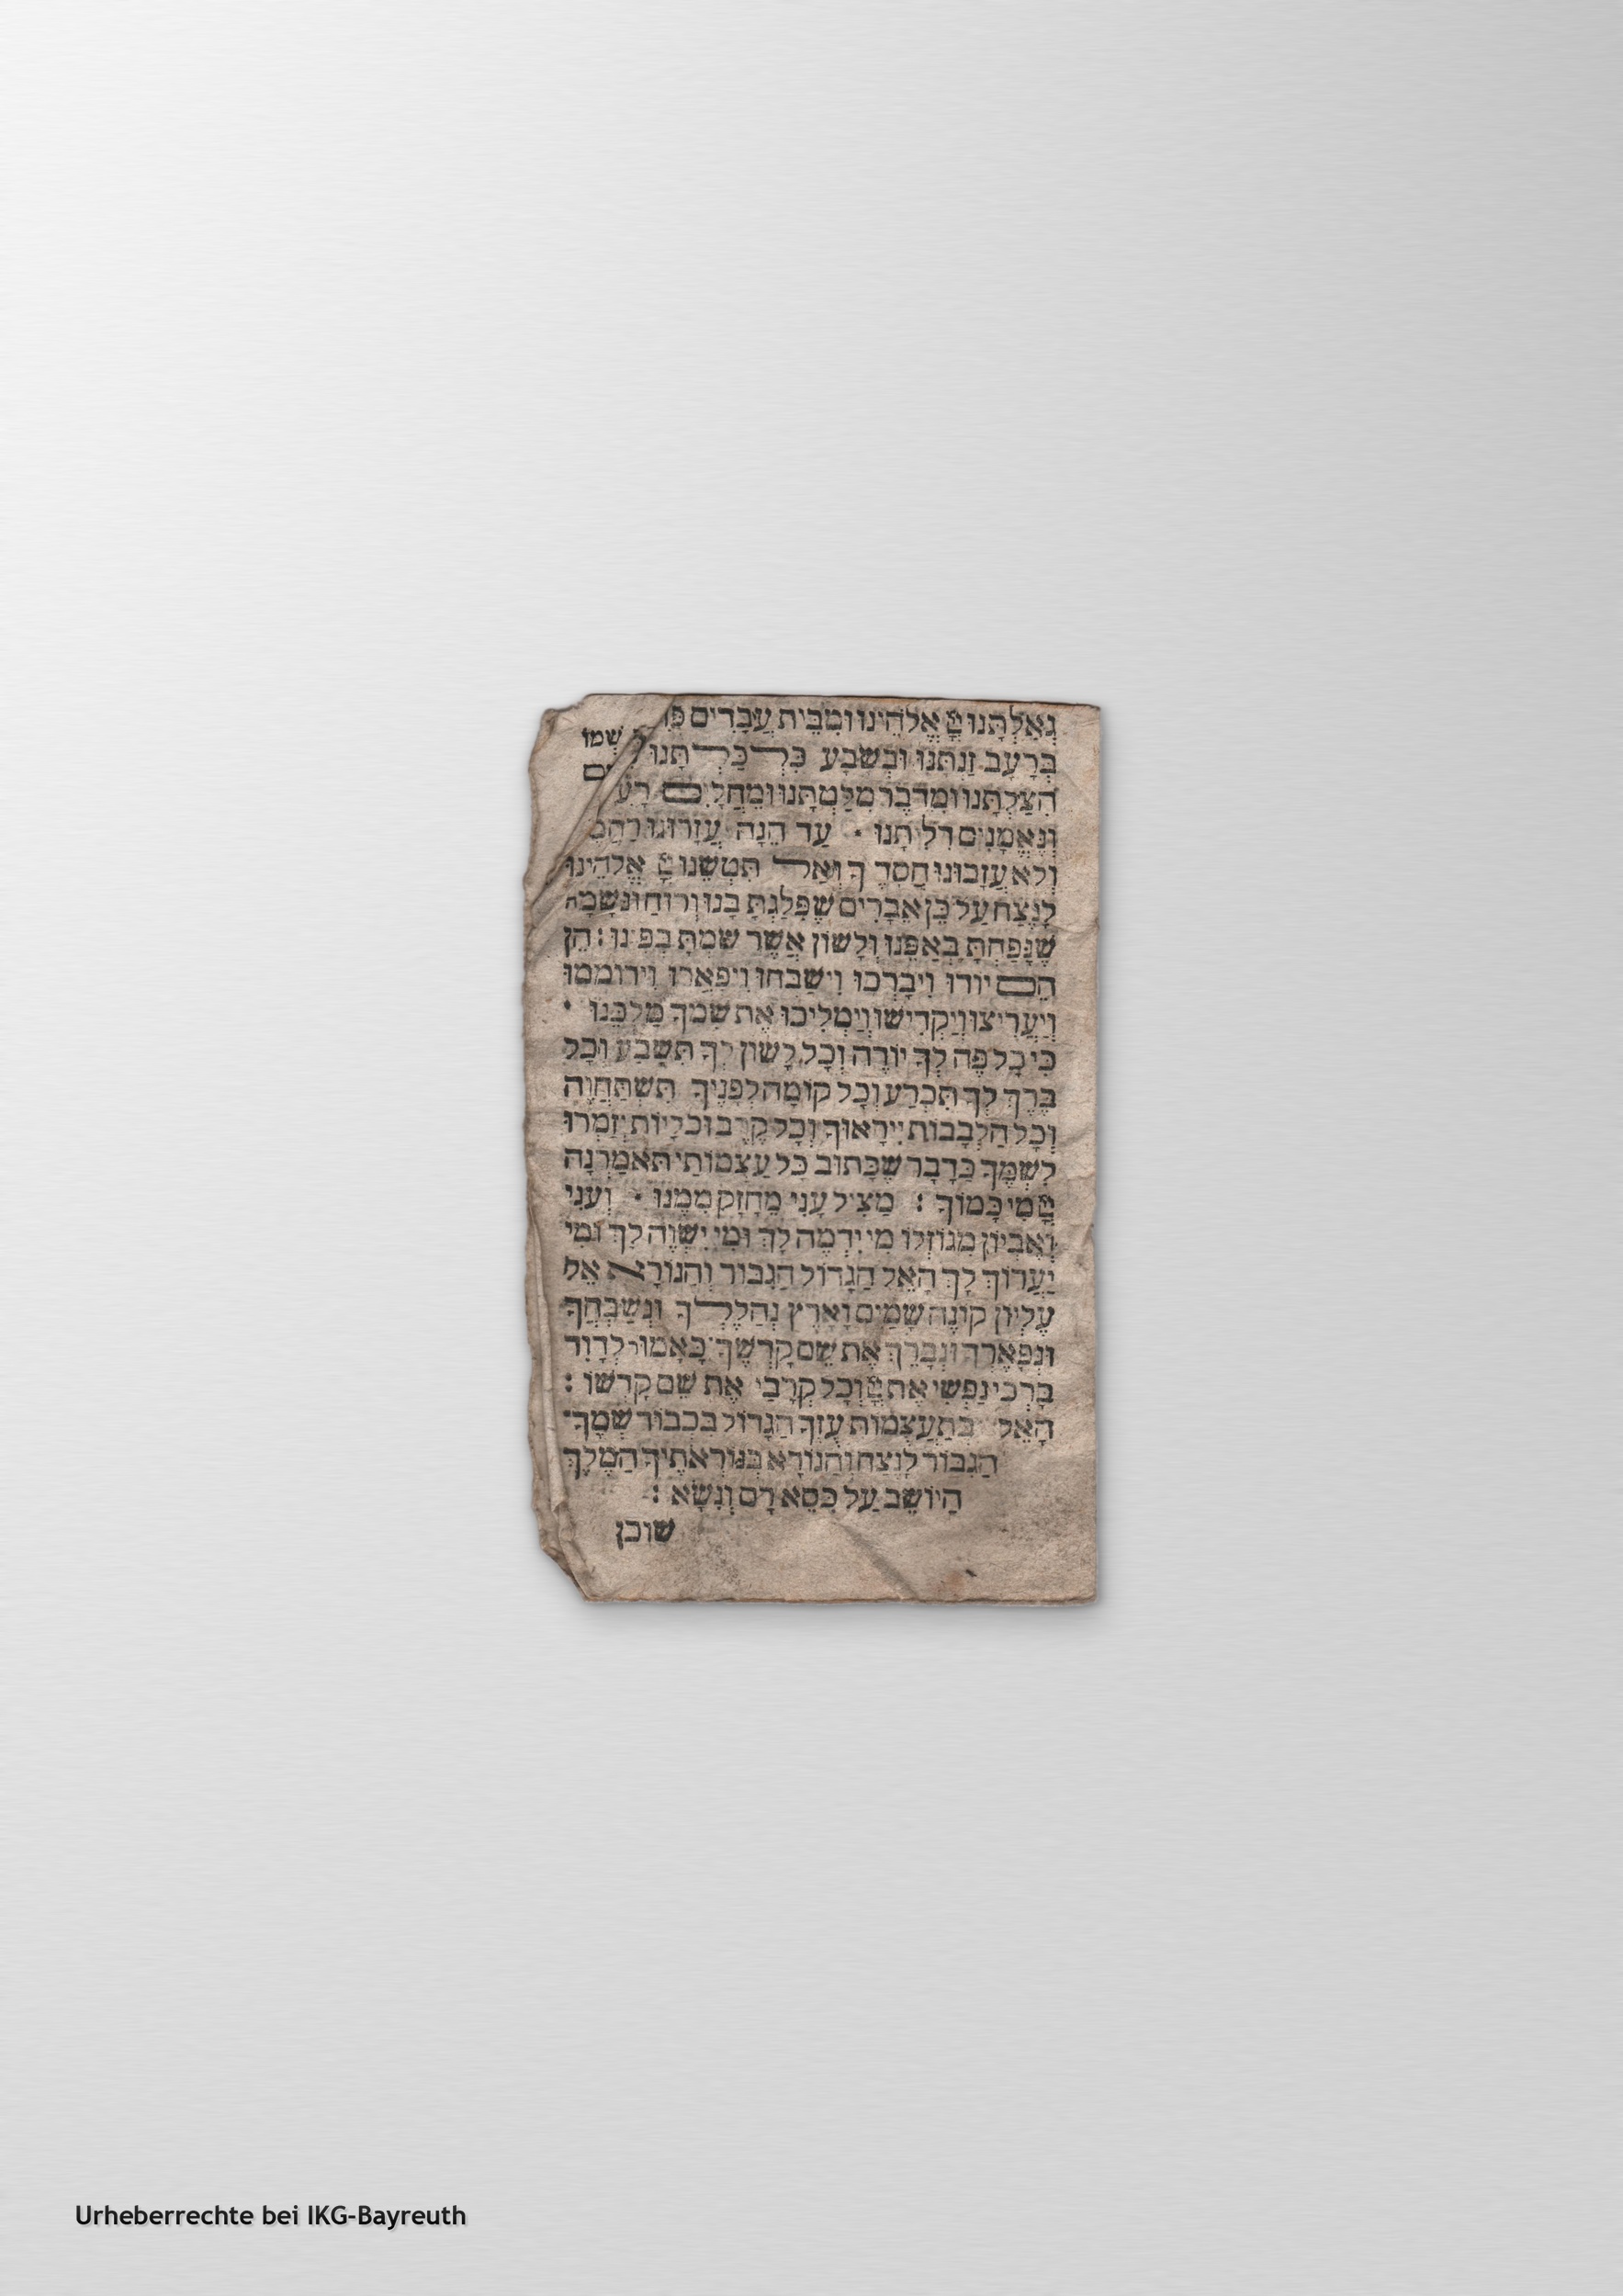 גְאַלְתָּנוּ יְיָ אֱלֹהֵינוּ וּמִבֵּית עֲבָדִים
שְׁמוֹ
בְּרָעָב זַנְתָּנוּ וּבְשָׂבָע כִּלְכַּלְתָּנוּ
הִצַּלְתָּנוּ וּמִדֶּבֶר מִלַּטְתָּנוּ וּמֵחֳלָיִם רָעִ
וְנֶאֱמָנִים דִּלִּתָנוּ · עַד הֵנָּה עֲזָרוּנוּ רַחֲמֶ
וְלֹא עֲזָבוּנוּ חֲסָדֶיךָ וְאַל תִּטְּשֵׁנוּ יְיָ אֱלֹהֵינוּ
לָנֶצַח עַל כֵּן אֵבָרִים שֶׁפִּלַּגְתָּ בָּנוּ וְרוּחַ וּנְשָׁמָה
שֶׁנָּפַחְתָּ בְּאַפֵּנוּ וְלָשׁוֹן אֲשֶׁר שַׂמְתָּ בְּפִינוּ : הֵן
הֵם יוֹדוּ וִיבָרְכוּ וִישַׁבְּחוּ וִיפָאֲרוּ וִירוֹמְמוּ
וְיַעֲרִיצוּ וְיַקְדִּישׁוּ וְיַמְלִיכוּ אֶת שִׁמְךָ מַלְכֵּנוּ ·
כִּי כָל פֶּה לְךָ יוֹדֶה וְכָל לָשׁוֹן לְךָ תִּשָּׁבַע וְכָל
בֶּרֶךְ לְךָ תִּכְרַע וְכָל קוֹמָה לְפָנֶיךָ תִּשְׁתַּחֲוֶה
וְכָל הַלְּבָבוֹת יִירָאוּךָ וְכָל קֶרֶב וּכְלָיוֹת יְזַמְּרוּ
לִשְׁמֶךָ כַּדָּבָר שֶׁכָּתוּב כָּל עַצְמוֹתַי תֹּאמַרְנָה
יְיָ מִי כָמוֹךָ : מַצִּיל עָנִי מֵחָזָק מִמֶּנּוּ · וְעָנִי
וְאֶבְיוֹן מִגּוֹזְלוֹ מִי יִדְמֶה לָּךְ וּמִי יִשְׁוֶה לָּךְ וּמִי
יַעֲרוֹךְ לָךְ הָאֵל הַגָּדוֹל הַגִּבּוֹר וְהַנּוֹרָא אֵל
עֶלְיוֹן קוֹנֵה שָׁמַיִם וָאָרֶץ נְהַלֶּלְךָ וּנְשַׁבֵּחֲךָ
וּנְפָאֶרְךָ וּנְבָרֵךְ אֶת שֵׁם קָדְשֶׁךָ כָּאָמוּר לְדָוִד
בָּרְכִי נַפְשִׁי אֶת יְיָ וְכָל קְרָבַי אֶת שֵׁם קָדְשׁוֹ :
הָאֵל בְּתַעֲצֻמוֹת עֻזֶּךָ הַגָּדוֹל בִּכְבוֹד שְׁמֶךָ
הַגִּבּוֹר לָנֶצַח וְהַנּוֹרָא בְּנוֹרְאֹתֶיךָ הַמֶּלֶךְ
הַיּוֹשֵׁב עַל כִּסֵּא רָם וְנִשָּׂא :
שוכן
Urheberrechte bei IKG-Bayreuth